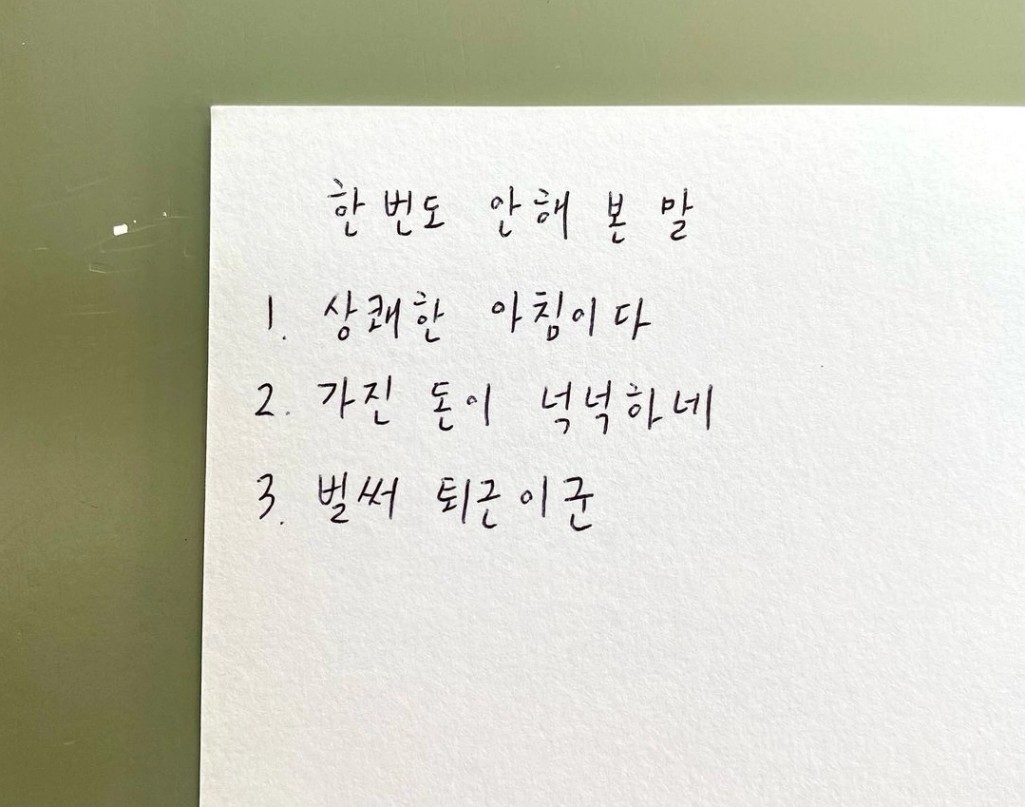 한번도 안해 본 말
1. 상쾌한 아침이다
2. 가진 돈이 넉넉하네
3. 벌써 퇴근이군